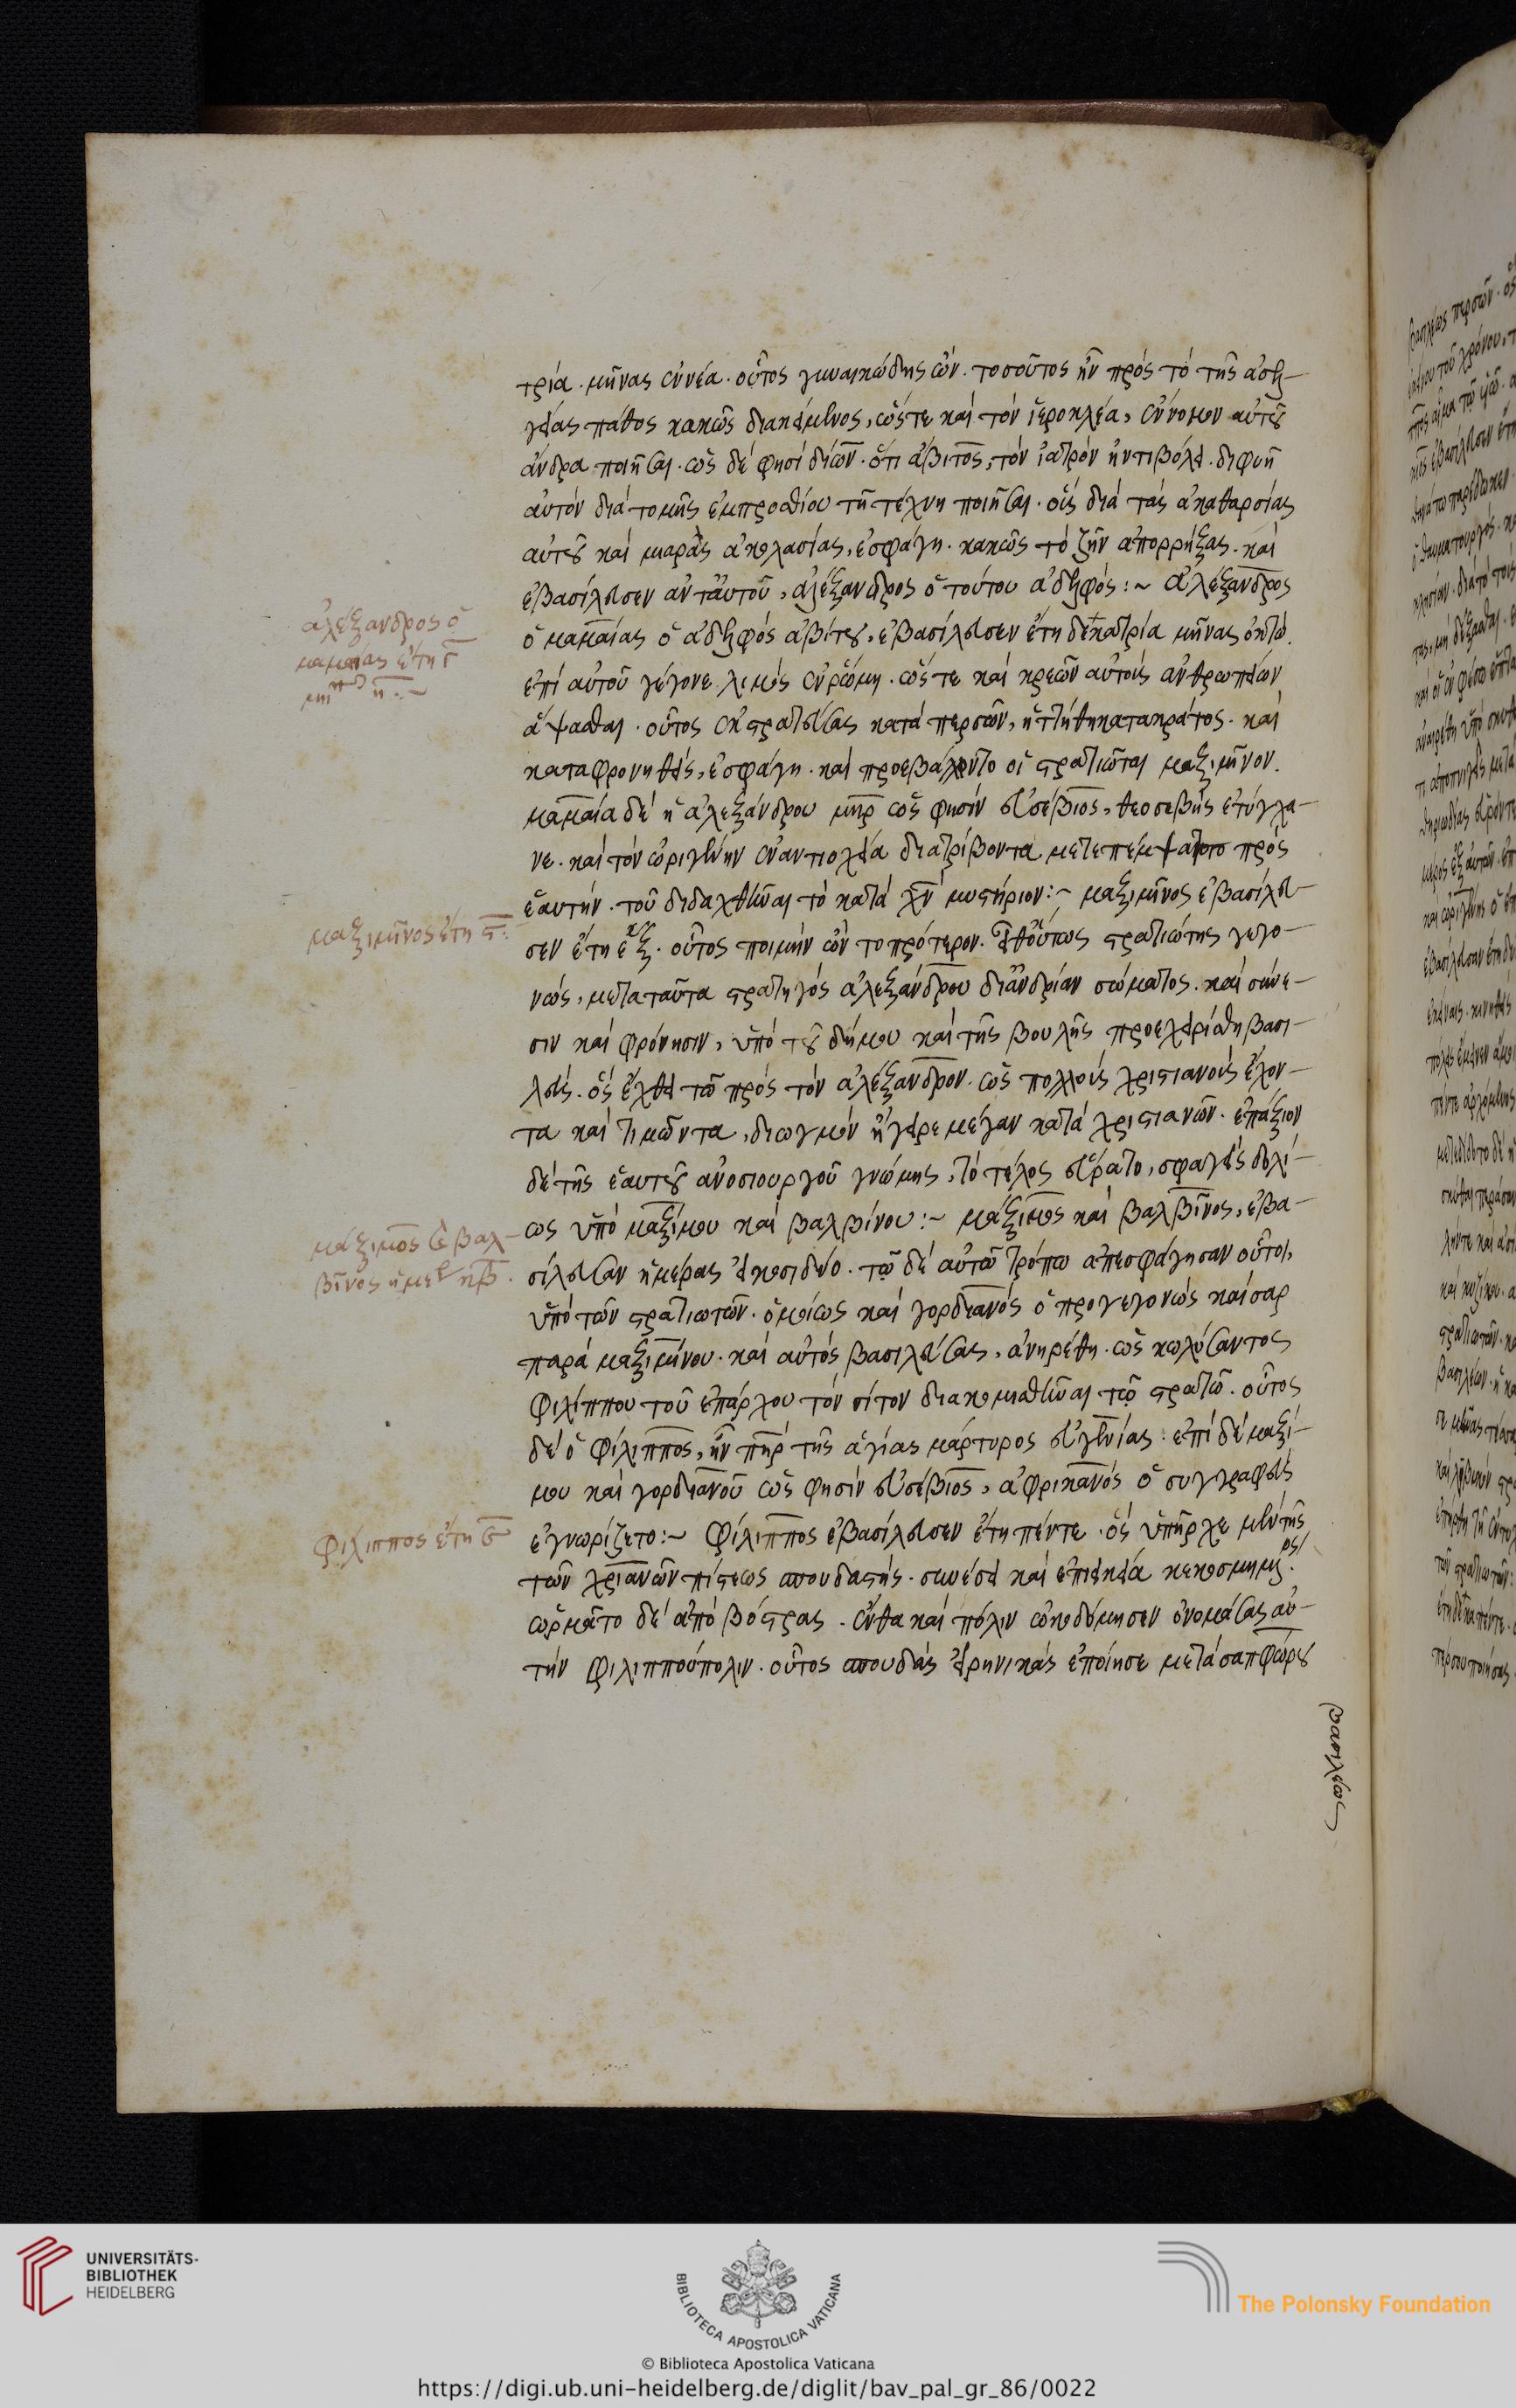 τρία. μῆνας ἐννέα. οὗτος γυναικώδης ὤν. τοσοῦτος ἦν πρὸς τὸ τῆς ἀσελ-
γείας πάθος κακῶς διακείμενος, ὥστε καὶ τὸν ἱεροκλέα, ἔννομον αὐτοῦ
ἄνδρα ποιῆσαι. ὡς δέ φησι δίων. ὅτι ἄβιτος, τὸν ἰατρὸν ἠντιβόλει. διφυῆ
αὐτὸν διὰ τομῆς ἐμπροσθίου τῆ τέχνη ποιῆσαι. ὃς διὰ τὰς ἀκαθαρσίας
αὐτοῦ καὶ μιαρὰς ἀκολασίας, ἐσφάγη. κακῶς τὸ ζῆν ἀπορρήξας. καὶ
ἐβασίλευσεν ἀντ' αὐτοῦ, ἀλέξανδρος ὁ τούτου ἀδελφός :~ ἀλέξανδρος
ὁ μαμαίας ὁ ἀδελφὸς ἀβίτου, ἐβασίλευσεν ἔτη δεκατρία μῆνας ὀκτώ.
ἐπὶ αὐτοῦ γέγονε λιμὸς ἐν ῥώμη. ὥστε καὶ κρεῶν αὐτοὺς ἀνθρωπείων
ἅψασθαι. οὗτος ἐκστρατεύσας κατὰ περσῶν, ἡττήθη κατακράτος. καὶ
καταφρονηθείς, ἐσφάγη. καὶ προεβάλοντο οἱ στρατιῶται μαξιμῖνον.
μαμαία δὲ ἡ ἀλεξάνδρου μηρ ὥς φησιν εὐσέβιος, θεοσεβὴς ἐτύγχα-
νε. καὶ τὸν ὠριγένην ἐν ἀντιοχεία διατρίβοντα μετεπέμψατο πρὸς
ἑαυτήν. τοῦ διδαχθῆναι τὸ κατὰ χν μυστήριον :~ μαξιμῖνος ἐβασίλευ-
σεν ἔτη ἕξ. οὗτος ποιμὴν ὢν τοπρότερον. εἶθ' οὕτως στρατιώτης γεγο-
νώς, μετὰ ταῦτα στρατηγὸς ἀλεξάνδρου δι' ἀνδρίαν σώματος. καὶ σύνε-
σιν καὶ φρόνησιν, ὑπὸ τοῦ δήμου καὶ τῆς βουλῆς προεχειρίσθη βασι-
λεύς. ὃς ἔχθει τῶ πρὸς τὸν ἀλέξανδρον. ὡς πολλοὺς χριστιανοὺς ἔχον-
τα καὶ τιμῶντα, διωγμὸν ἤγειρε μέγαν κατὰ χριστιανῶν. ἐπάξιον
δὲ τῆς ἑαυτοῦ ἀνοσιουργοῦ γνώμης, τὸ τέλος εὕρατο, σφαγεὶς δολί-
ως ὑπὸ μαξίμου καὶ βαλβίνου :~ μάξιμος καὶ βαλβῖνος, ἐβα-
σίλευσαν ἡμέρας εἰκοσιδύο. τῶ δὲ αὐτῶ τρόπω ἀπεσφάγησαν οὗτοι,
ὑπὸ τῶν στρατιωτῶν. ὁμοίως καὶ γορδιανὸς ὁ προγεγονὼς καῖσαρ
παρὰ μαξιμίνου. καὶ αὐτὸς βασιλεύσας, ἀνηρέθη. ὡς κωλύσαντος
φιλίππου τοῦ ἐπάρχου τὸν σίτον διακομισθῆναι τῶ στρατῶ. οὗτος
δὲ ὁ φίλιππος, ἦν πηρ τῆς ἁγίας μάρτυρος εὐγενίας. ἐπὶ δὲ μαξί-
μου καὶ γορδιανοῦ ὥς φησιν εὐσέβιος, ἀφρικανὸς ὁ συγγραφεὺς
ἐγνωρίζετο :~ φίλιππος ἐβασίλευσεν ἔτη πέντε. ὃς ὑπῆρχε μὲν τῆς
τῶν χριανῶν πίστεως σπουδαστής. συνέσει καὶ ἐπιεικεία κεκοσμημένος.
ὥρμᾶτο δὲ ἀπὸ βόστρας. ἔνθα καὶ πόλιν ὠκοδόμησεν ὀνομάσας αὐ-
τὴν φιλιππούπολιν. οὗτος σπουδὰς εἰρηνικὰς ἐποίησε μετὰ σαπφώρου
βασιλέως
ἀλέξανδρος ὁ
μαμαίας ἔτη ιγ
μην η :~
μαξιμῖνος ἔτη ϛ :
μάξιμος καὶ βαλ-
βῖνος ἡμέρ κβ.
φίλιππος ἔτη ε
UNIVERSITÄTS-
BIBLIOTHEK
HEIDELBERG
BIBLIOTECA APOSTOLICA VATICANA
The Polonsky Foundation
© Biblioteca Apostolica Vaticana
https://digi.ub.uni-heidelberg.de/diglit/bav_pal_gr_86/0022